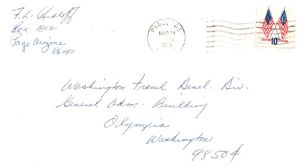 Box 1800
Page Arizona
86040
PAGE, AZ
MAR 24
10¢
Washington Travel Devel. Div.
General Adm. Building
Olympia
Washington
98504